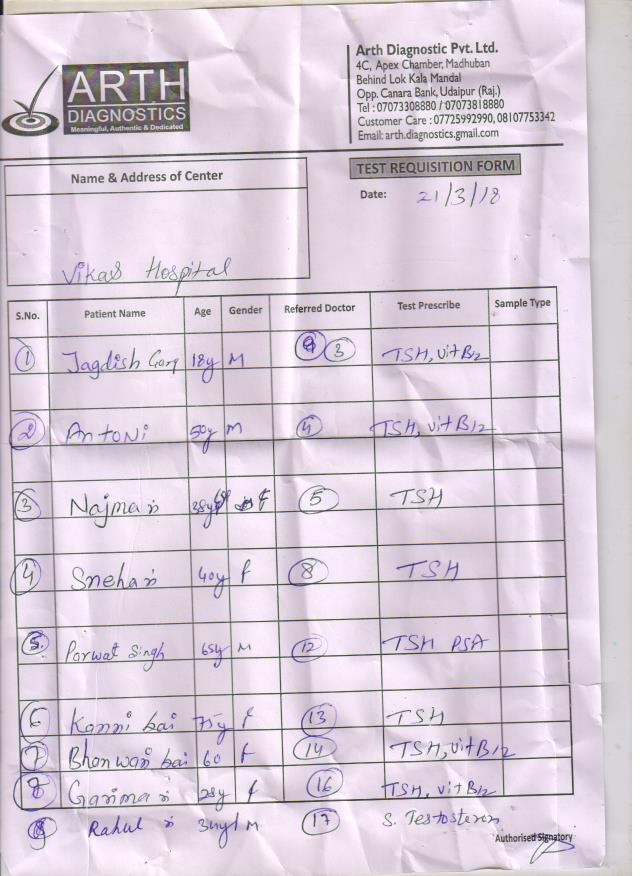 ARTH
DIAGNOSTICS
Meaningful, Authentic & Dedicated
Arth Diagnostic Pvt. Ltd.
4C, Apex Chamber, Madhuban
Behind Lok Kala Mandal
Opp. Canara Bank, Udaipur (Raj.)
Tel : 07073308880 / 07073818880
Customer Care : 07725992990, 08107753342
Email: arth.diagnostics.gmail.com
Name & Address of Center
TEST REQUISITION FORM
Date: 21/3/18
Vikas Hospital
S.No. Patient Name Age Gender Referred Doctor Test Prescribe Sample Type
1 Jagdish Garg 18y M 3 TSH, vit B12
2 Antoni 50y M 4 TSH, vit B12
3 Najma 38y F 5 TSH
4 Sneha 40y f 8 TSH
5. Parwat Singh 65y M 12 TSH PSA
6 Kanni bai 75y f 13 TSH
7 Bhanwari bai 60 f 14 TSH, vit B12
8 Garima 28y f 16 TSH, vit B12
Rahul M 17 S. Testosteron
Authorised Signatory